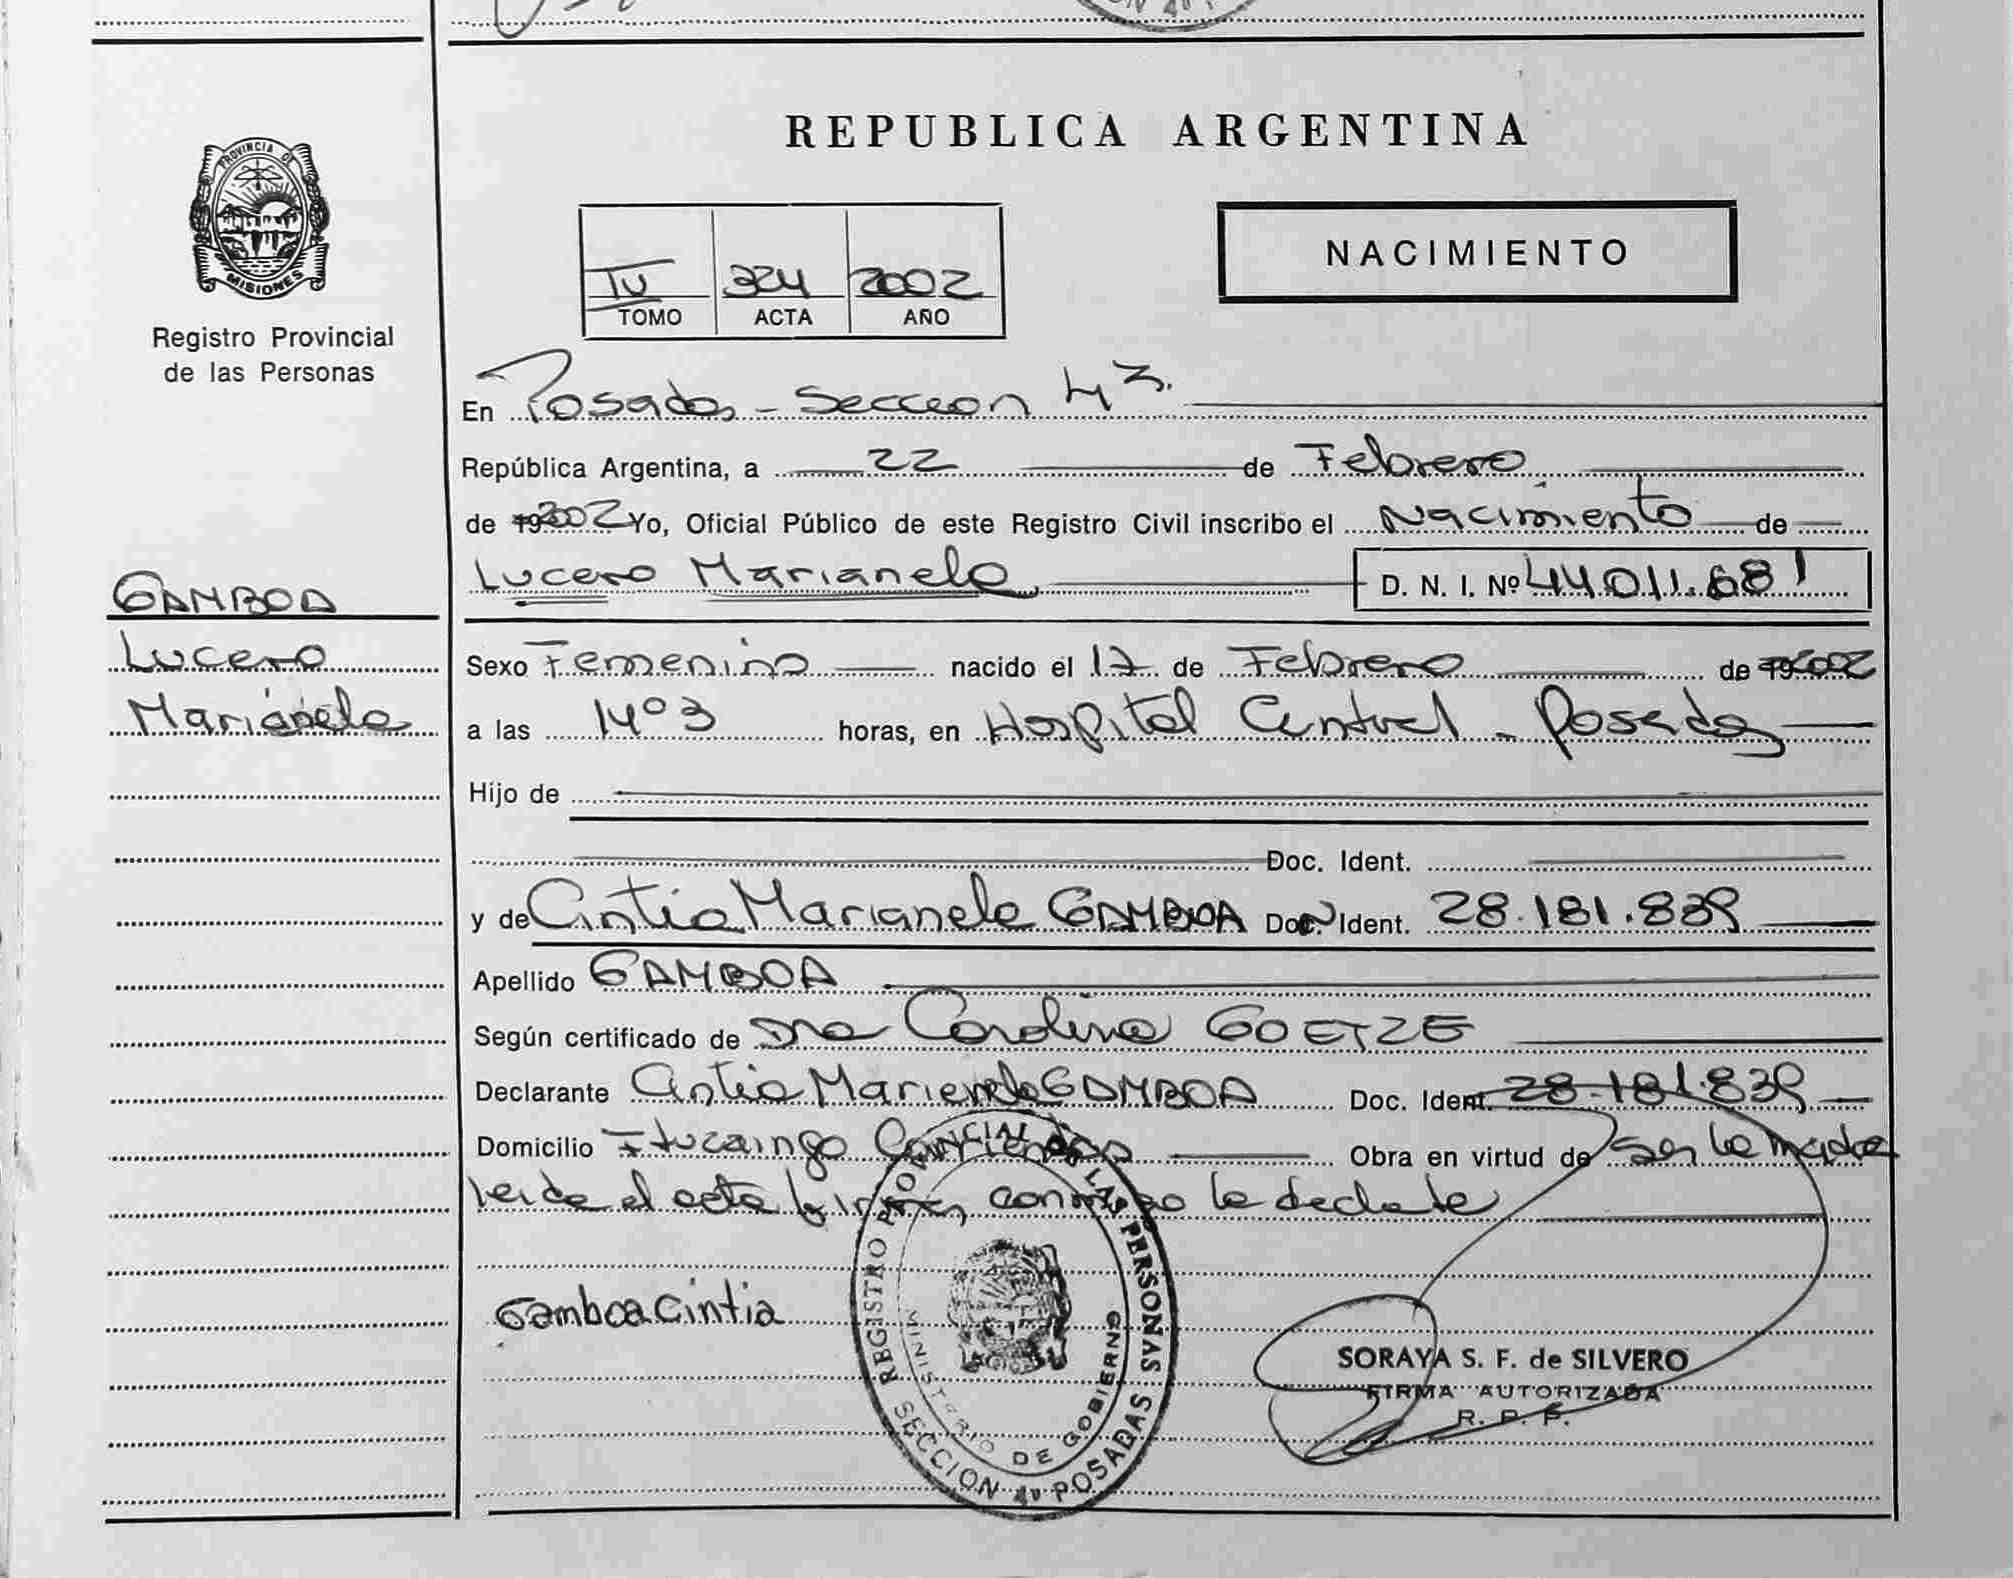 REPUBLICA ARGENTINA
PROVINCIA DE
MISIONES
Registro Provincial
de las Personas
NACIMIENTO
IV 324 2002
TOMO ACTA AÑO
En Posadas - Seccion 4ª.
República Argentina, a 22 de Febrero
de 2002 Yo, Oficial Público de este Registro Civil inscribo el Nacimiento de
Lucero Marianela D. N. I. Nº 44.011.681
GAMBOA
Lucero
Marianela
Sexo Femenino nacido el 17 de Febrero de 2002
a las 14º3 horas, en Hospital Central - Posadas
Hijo de
Doc. Ident.
y de Cintia Marianela GAMBOA Doc. Ident. 28.181.839
Apellido GAMBOA
Según certificado de Dra Carolina GOETZE
Declarante Cintia Marianela GAMBOA Doc. Ident. 28.181.839
Domicilio Ituzaingo Corrientes Obra en virtud de ser la madre
leida el acta firman conmigo la declate
Gamboa Cintia
REGISTRO PROVINCIAL DE LAS PERSONAS
MINISTERIO DE GOBIERNO
SECCION 4ª POSADAS
SORAYA S. F. de SILVERO
FIRMA AUTORIZADA
R. P. P.